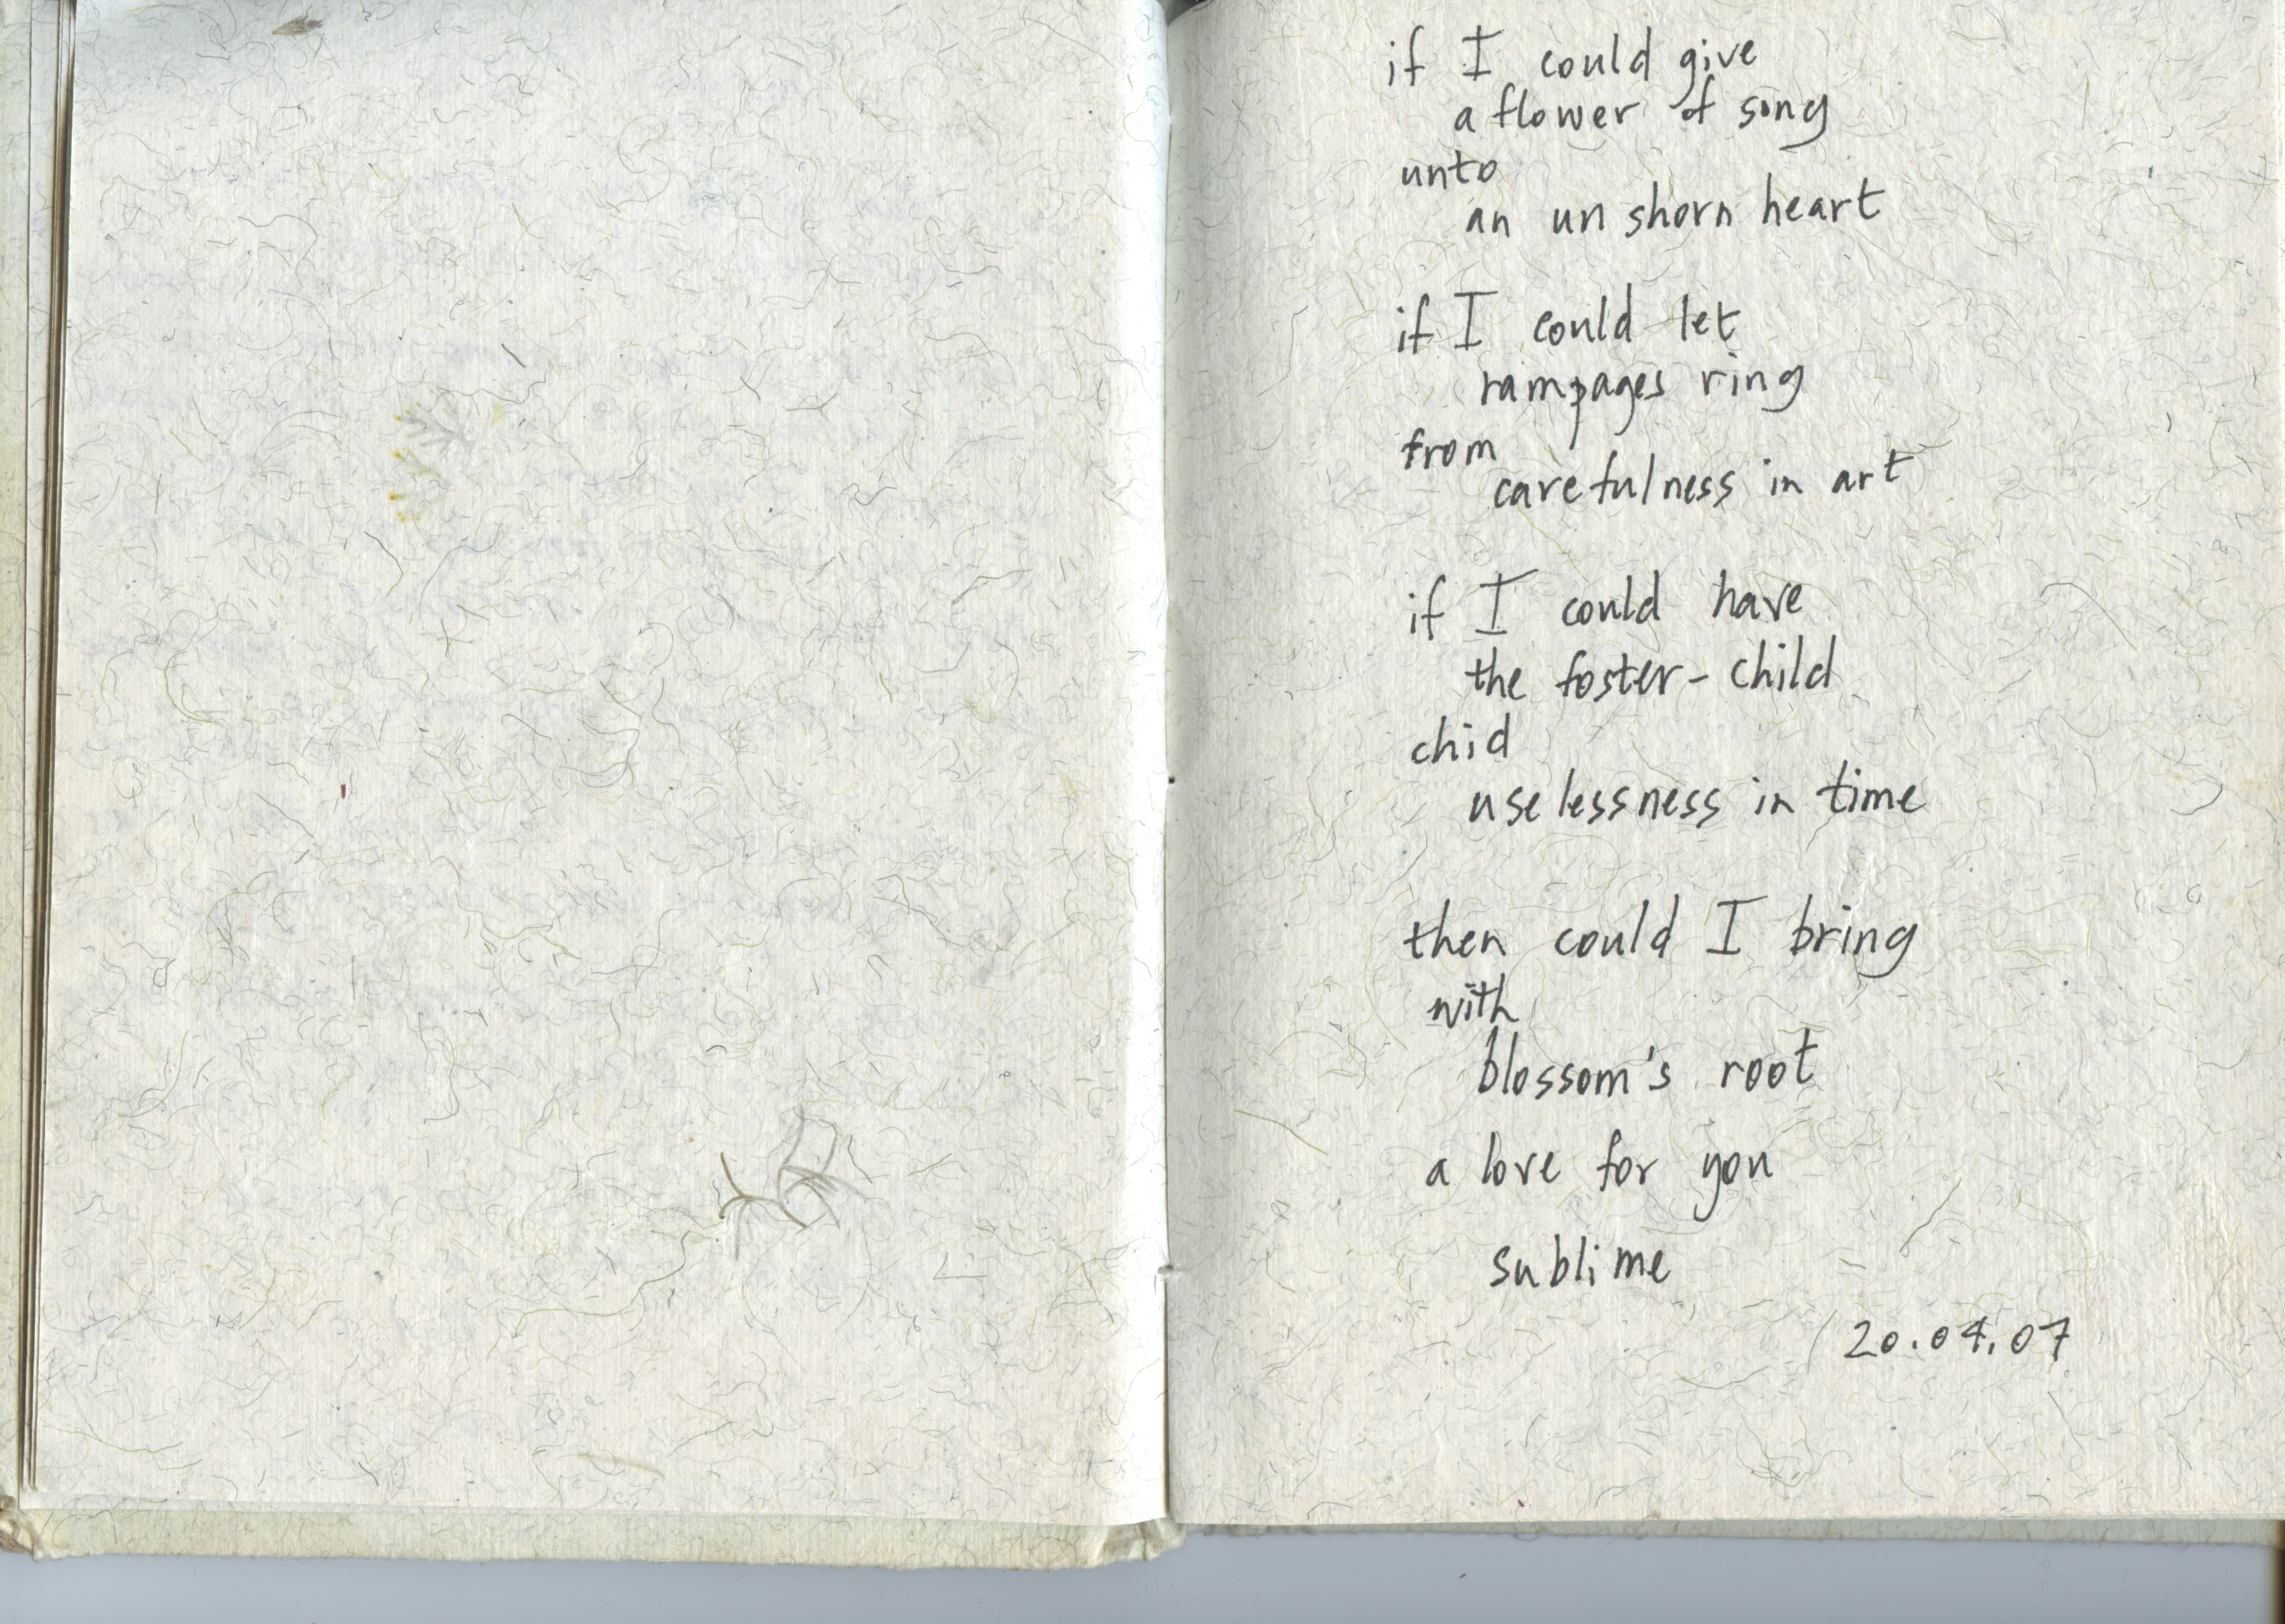 if I could give
a flower of song
unto
an un shorn heart
if I could let
rampages ring
from
carefulness in art
if I could have
the foster-child
chid
uselessness in time
then could I bring
with
blossom's root
a love for you
sublime
20.04.07